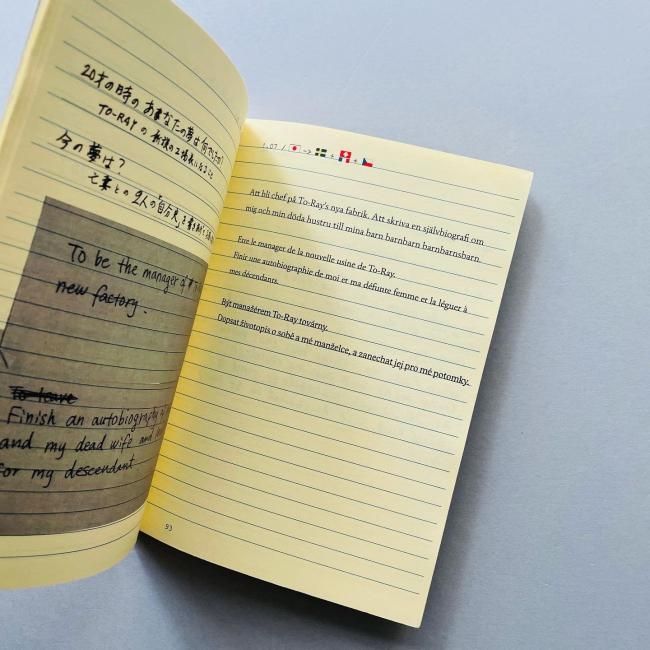 20才の時の あなたの夢は何でしたか?
TO-RAY の 新設の工場長になること
今の夢は?
亡妻との 2人の「自分史」を書き
To be the manager of
new factory.
To leave
Finish an autobiography
and my dead wife and
for my descendant
1.07 /
Att bli chef på To-Ray's nya fabrik. Att skriva en självbiografi om
mig och min döda hustru till mina barn barnbarn barnbarnsbarn.
Etre le manager de la nouvelle usine de To-Ray.
Finir une autobiographie de moi et ma défunte femme et la léguer à
mes décendants.
Být manažérem To-Ray továrny.
Dopsat životopis o sobě a mé manželce, a zanechat jej pro mé potomky.
93